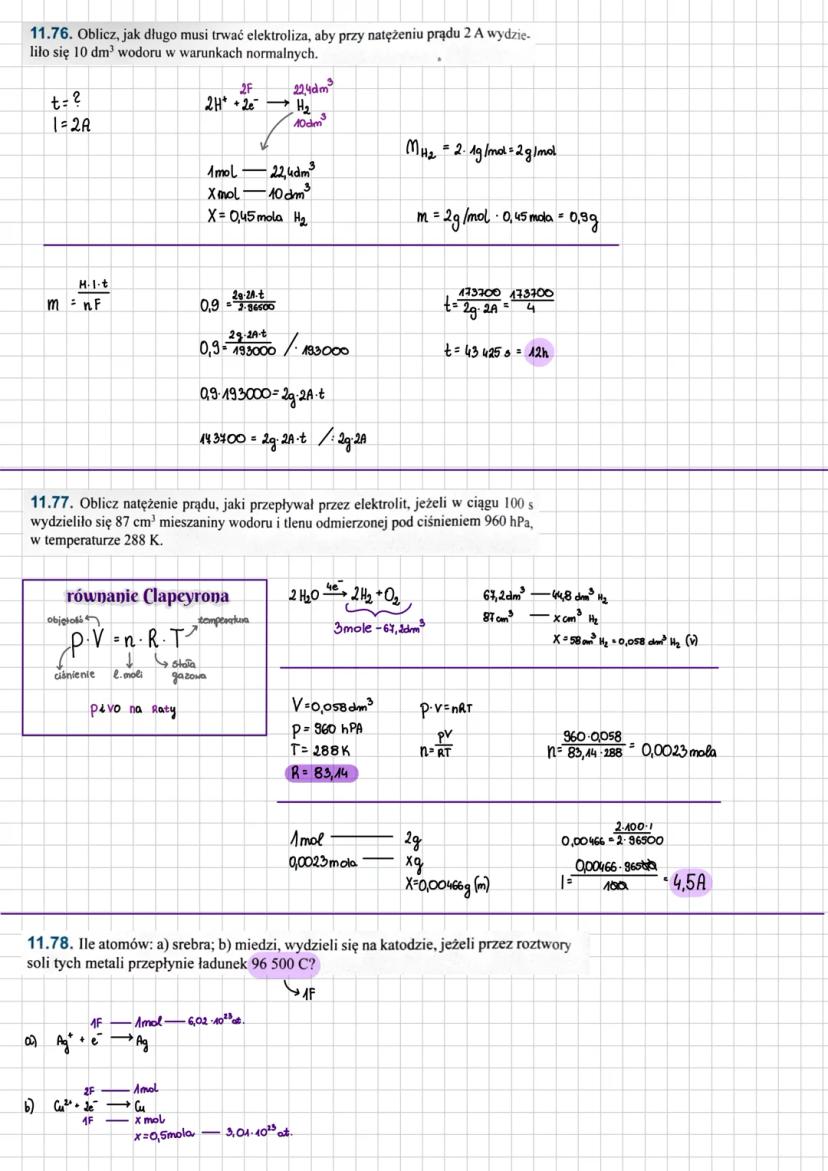 11.76. Oblicz, jak długo musi trwać elektroliza, aby przy natężeniu prądu 2 A wydzie-
liło się 10 dm³ wodoru w warunkach normalnych.
t = ?
I = 2A
2F 22,4dm³
2H⁺ + 2e⁻ → H₂
10dm³
1mol — 22,4dm³
X mol — 10 dm³
X = 0,45 mola H₂
M H₂ = 2 · 1g/mol = 2g/mol
m = 2g/mol · 0,45 mola = 0,9g
m = M·I·t / nF
0,9 = 2g·2A·t / 2·96500
0,9 = 2g·2A·t / 193000 / · 193000
0,9·193000 = 2g·2A·t
173700 = 2g·2A·t / : 2g·2A
t = 173700 / 2g·2A = 173700 / 4
t = 43 425 s = 12h
11.77. Oblicz natężenie prądu, jaki przepływał przez elektrolit, jeżeli w ciągu 100 s
wydzieliło się 87 cm³ mieszaniny wodoru i tlenu odmierzonej pod ciśnieniem 960 hPa,
w temperaturze 288 K.
równanie Clapeyrona
objętość temperatura
p·V = n·R·T
ciśnienie l. moli stała gazowa
piVo na Raty
2 H₂O 4e⁻ → 2H₂ + O₂
3mole – 67,2dm³
67,2dm³ — 44,8 dm³ H₂
87 cm³ — x cm³ H₂
X = 58 cm³ H₂ = 0,058 dm³ H₂ (V)
V = 0,058 dm³
p = 960 hPA
T = 288 K
R = 83,14
p·V = nRT
n = pV / RT
n = 960·0,058 / 83,14·288 = 0,0023 mola
1mol — 2g
0,0023 mola — xg
X = 0,00466g (m)
0,00466 = 2·100·I / 2·96500
I = 0,00466·96500 / 100 = 4,5A
11.78. Ile atomów: a) srebra; b) miedzi, wydzieli się na katodzie, jeżeli przez roztwory
soli tych metali przepłynie ładunek 96 500 C?
↳ 1F
1F — 1mol — 6,02·10²³ at.
a) Ag⁺ + e⁻ → Ag
2F — 1mol
b) Cu²⁺ + 2e⁻ → Cu
1F — x mol
x = 0,5mola — 3,01·10²³ at.